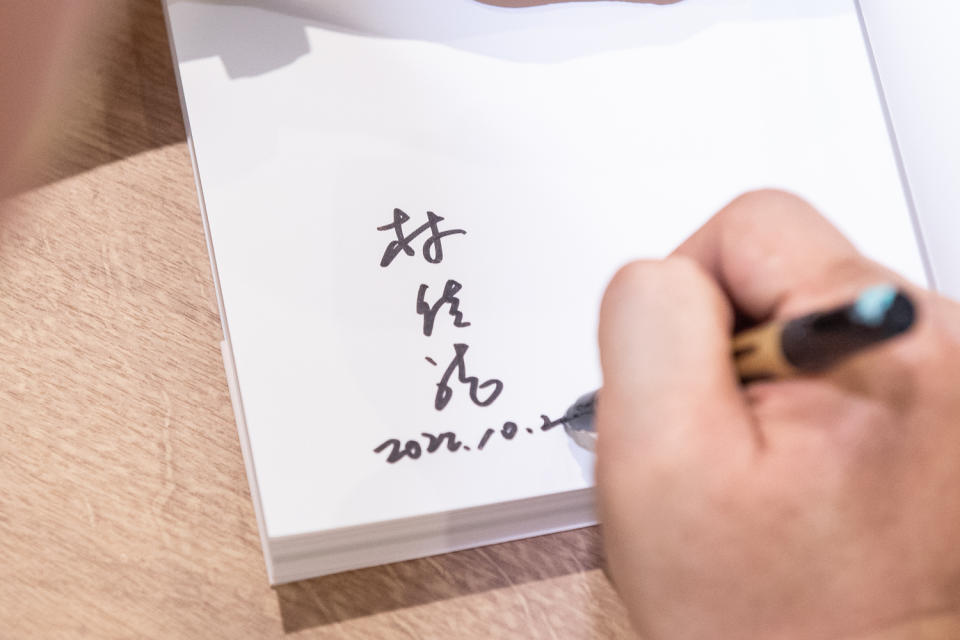 林佳龍
2022.10.2